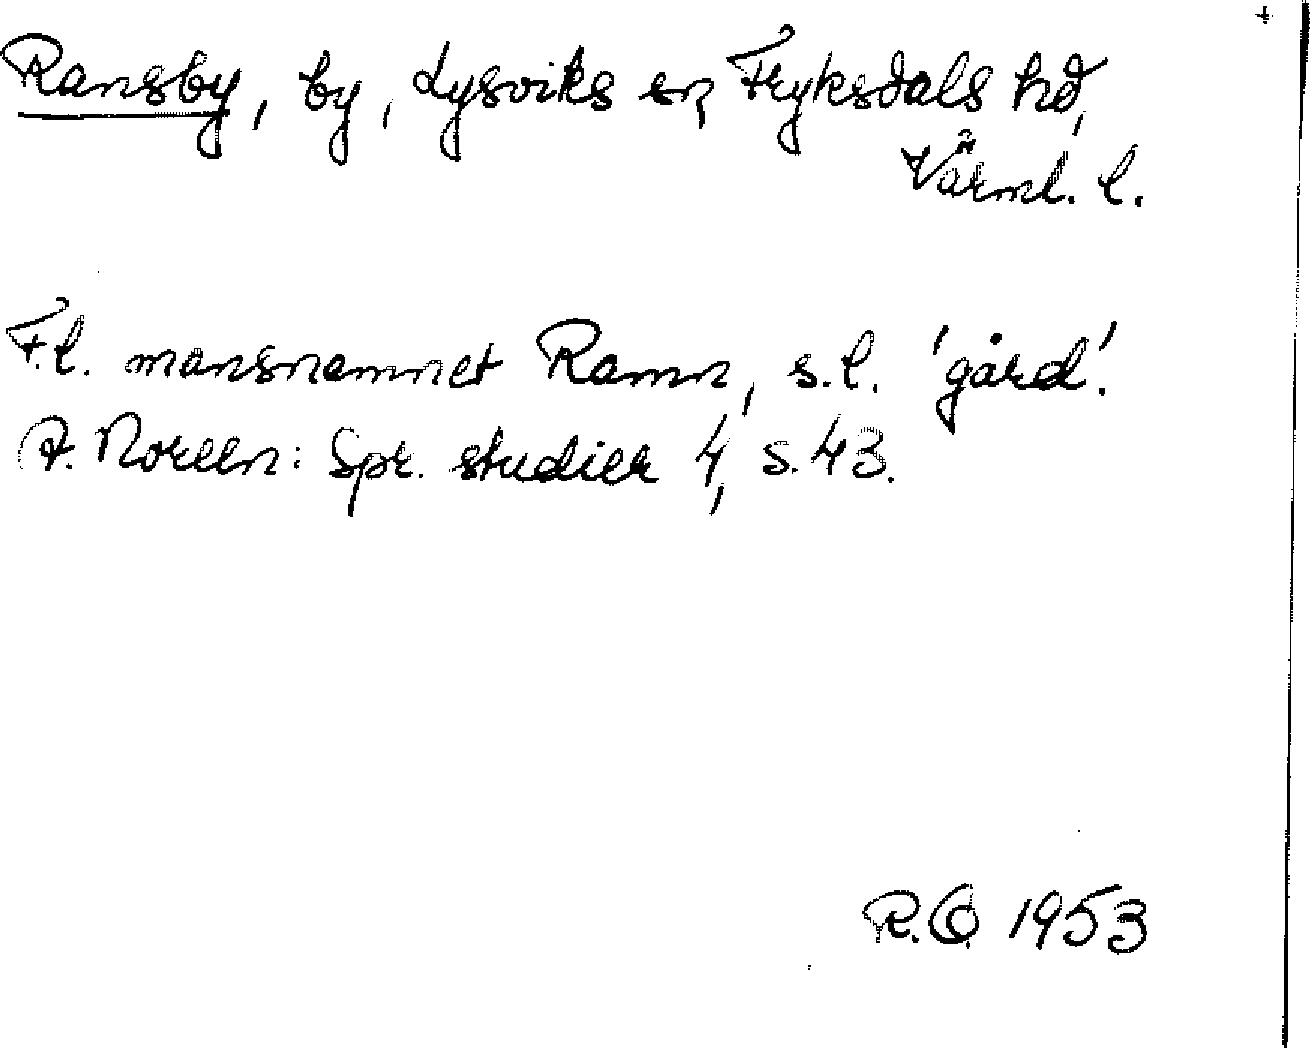 Ransby, by, Lysviks sn, Fryksdals hd,
Värml. l.
F.l. mansnamnet Ramn, s.l. 'gård'.
A. Noreen: Spr. studier 4, s. 43.
1953